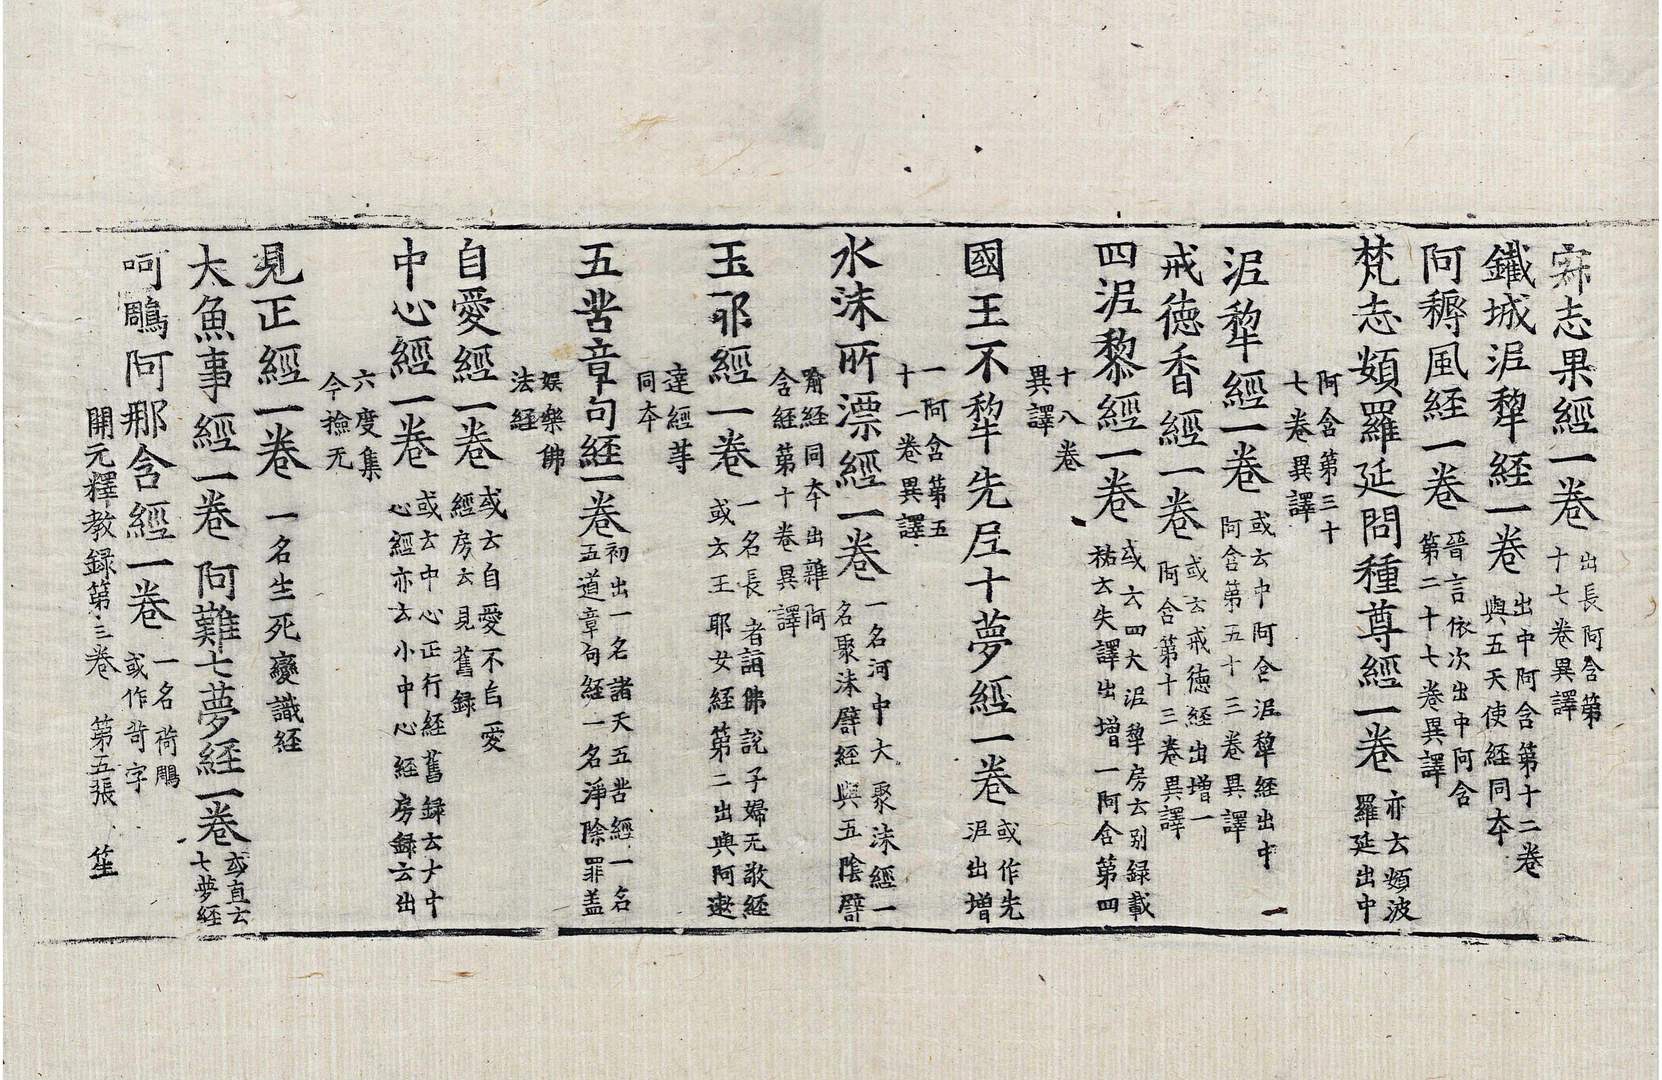 寂志果經一卷 出長阿含第十七卷異譯
鐵城泥犂経一卷 出中阿含第十二卷與五天使経同夲
阿耨風経一卷 晉言依次出中阿含第二十七卷異譯
梵志頞羅延問種尊經一卷 亦云頞波羅延出中
阿含第三十七卷異譯
泥犂經一卷 或云中阿含泥犂経出中阿含第五十三卷異譯
戒徳香經一卷 或云戒徳経出增一阿含第十三卷異譯
四泥黎經一卷 或云四大泥犂房云别録載祐云失譯出增一阿含第四
十八卷異譯
國王不犂先尼十夢經一卷 或作先泥出增
一阿含第五十一卷異譯
水沫所漂經一卷 一名河中大聚沫經一名聚沫譬經與五陰譬
喻経同夲出雜阿含経第十卷異譯
玉耶經一卷 一名長者詣佛說子婦无敬経或云玉耶女経第二出與阿遬
達経䓁同夲
五苦章句經一卷 初出一名諸天五苦經一名五道章句経一名淨除罪盖
娱樂佛法経
自愛經一卷 或云自愛不自愛經房云見舊録
中心經一卷 或云中心正行経舊録云大中心經亦云小中心経房録云出
六度集今撿无
見正經一卷 一名生死變識経
大魚事經一卷 阿難七夢經一卷 或直云七夢経
呵鵰阿那含經一卷 一名荷鵰或作苛字
開元釋教録第三卷 第五張 笙